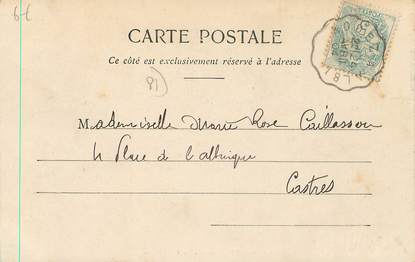 6f
CARTE POSTALE
Ce côté est exclusivement réservé à l'adresse
81
Mademoiselle Marie Rose Caillassou
4 Place de l'albinque
Castres